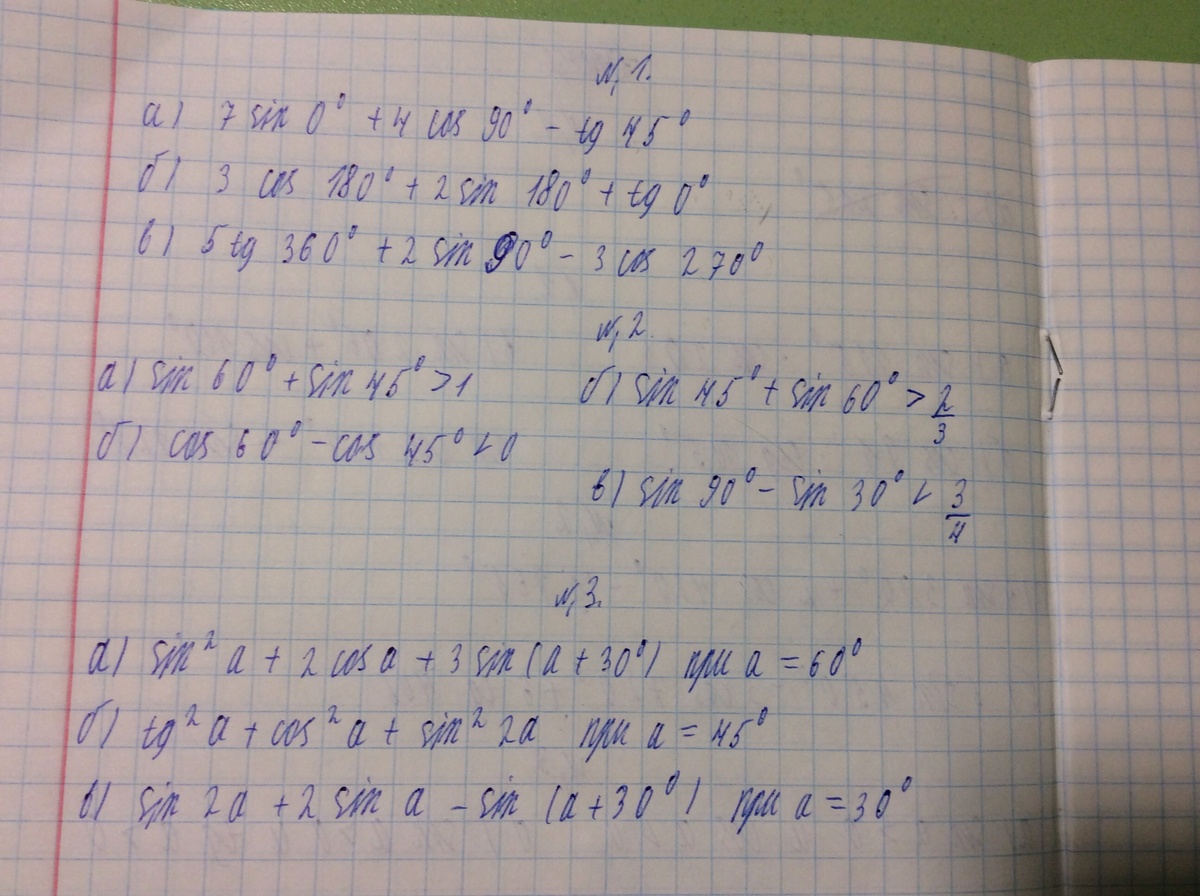 №1.
а) 7 sin 0° + 4 cos 90° - tg 45°
б) 3 cos 180° + 2 sin 180° + tg 0°
в) 5 tg 360° + 2 sin 90° - 3 cos 270°
№2.
а) sin 60° + sin 45° > 1
б) cos 60° - cos 45° < 0
б) sin 45° + sin 60° > 2/3
в) sin 90° - sin 30° < 3/4
№3.
а) sin² a + 2 cos a + 3 sin (a + 30°) при a = 60°
б) tg² a + cos² a + sin² 2a при a = 45°
в) sin 2a + 2 sin a - sin (a + 30°) при a = 30°